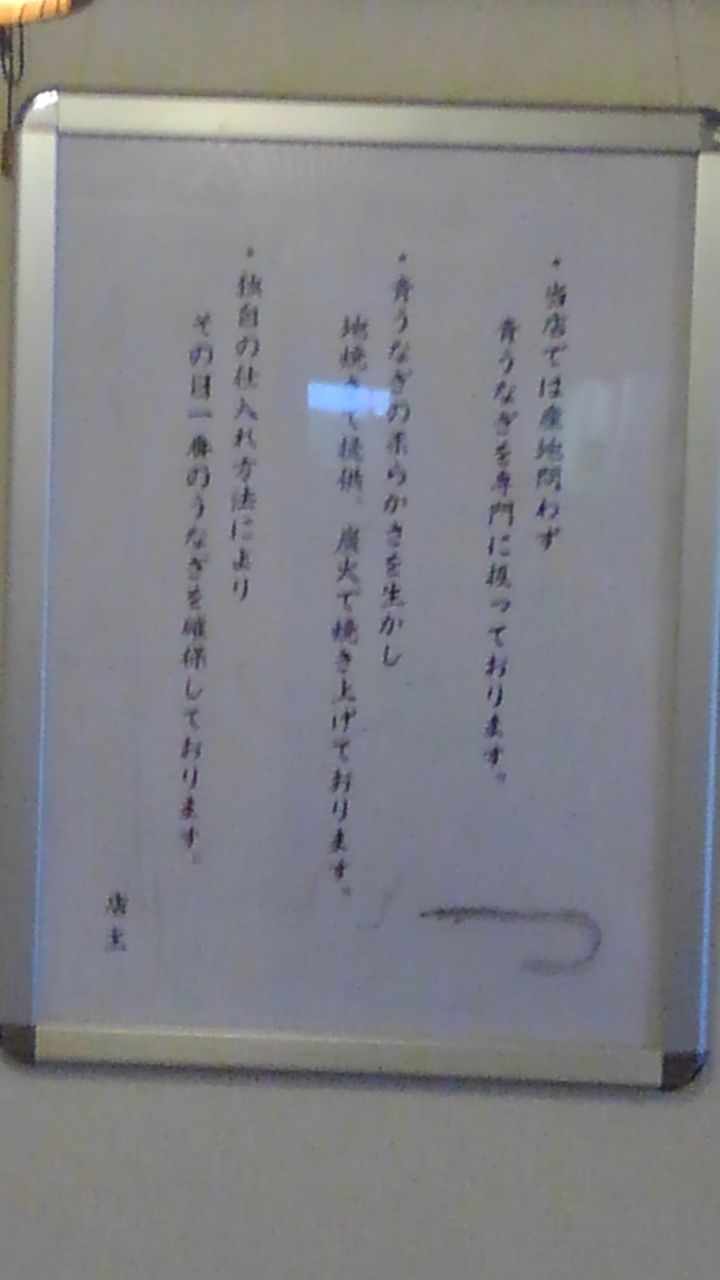 ・当店では産地問わず
青うなぎを専門に扱っております。
・青うなぎの柔らかさを生かし
地焼きで提供、炭火で焼き上げております。
・独自の仕入れ方法により
その日一番のうなぎを確保しております。
店主